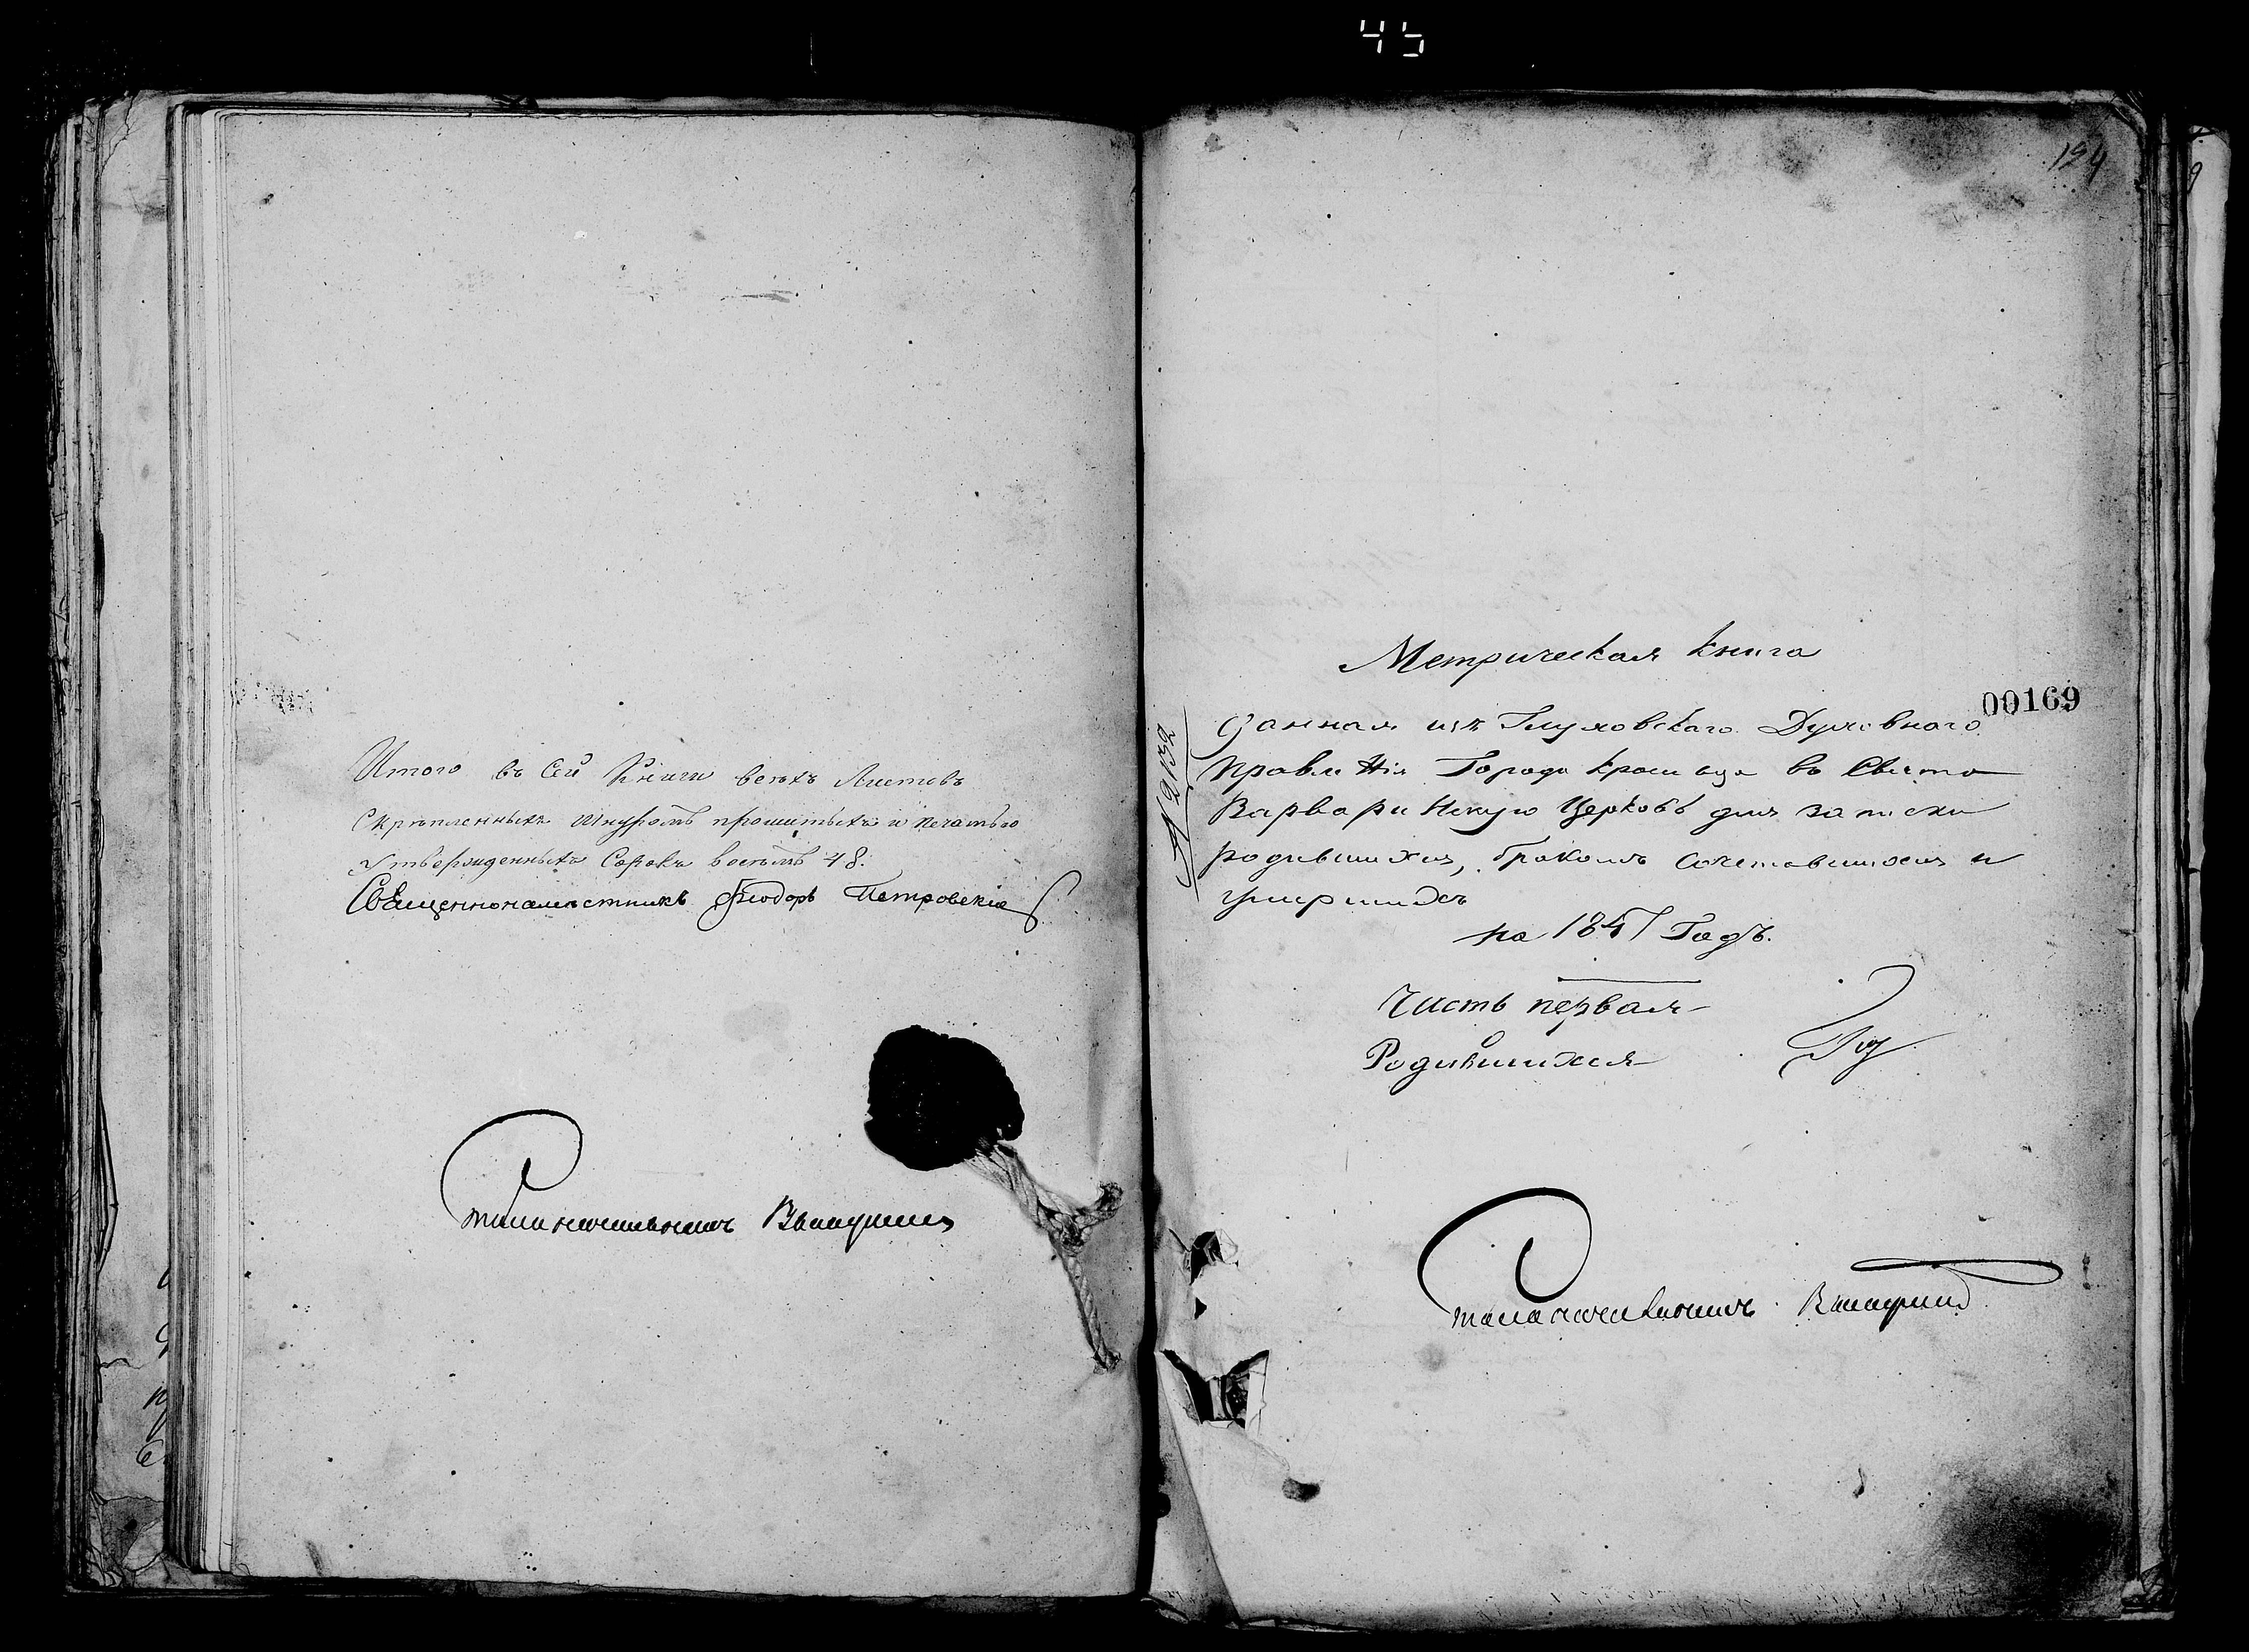 45
Итого въ Сей Книги всѣхъ Листовъ
Скрѣпленныхъ Шнуромъ прошитыхъ и печатью
Утвержденныхъ Сорокъ восѣмъ 48.
Священнонамѣстникъ Ѳіодоръ Петровскій
194
Метрическая книга
00169
Данная изъ Глуховскаго Духовнаго
Правленія Города Кролевца въ Свято
Варваринскую Церковь для записки
родившихся, бракомъ сочетавшихся и
умершихъ
на 1847 Годъ.
№ 2132
Часть первая
Родившихся